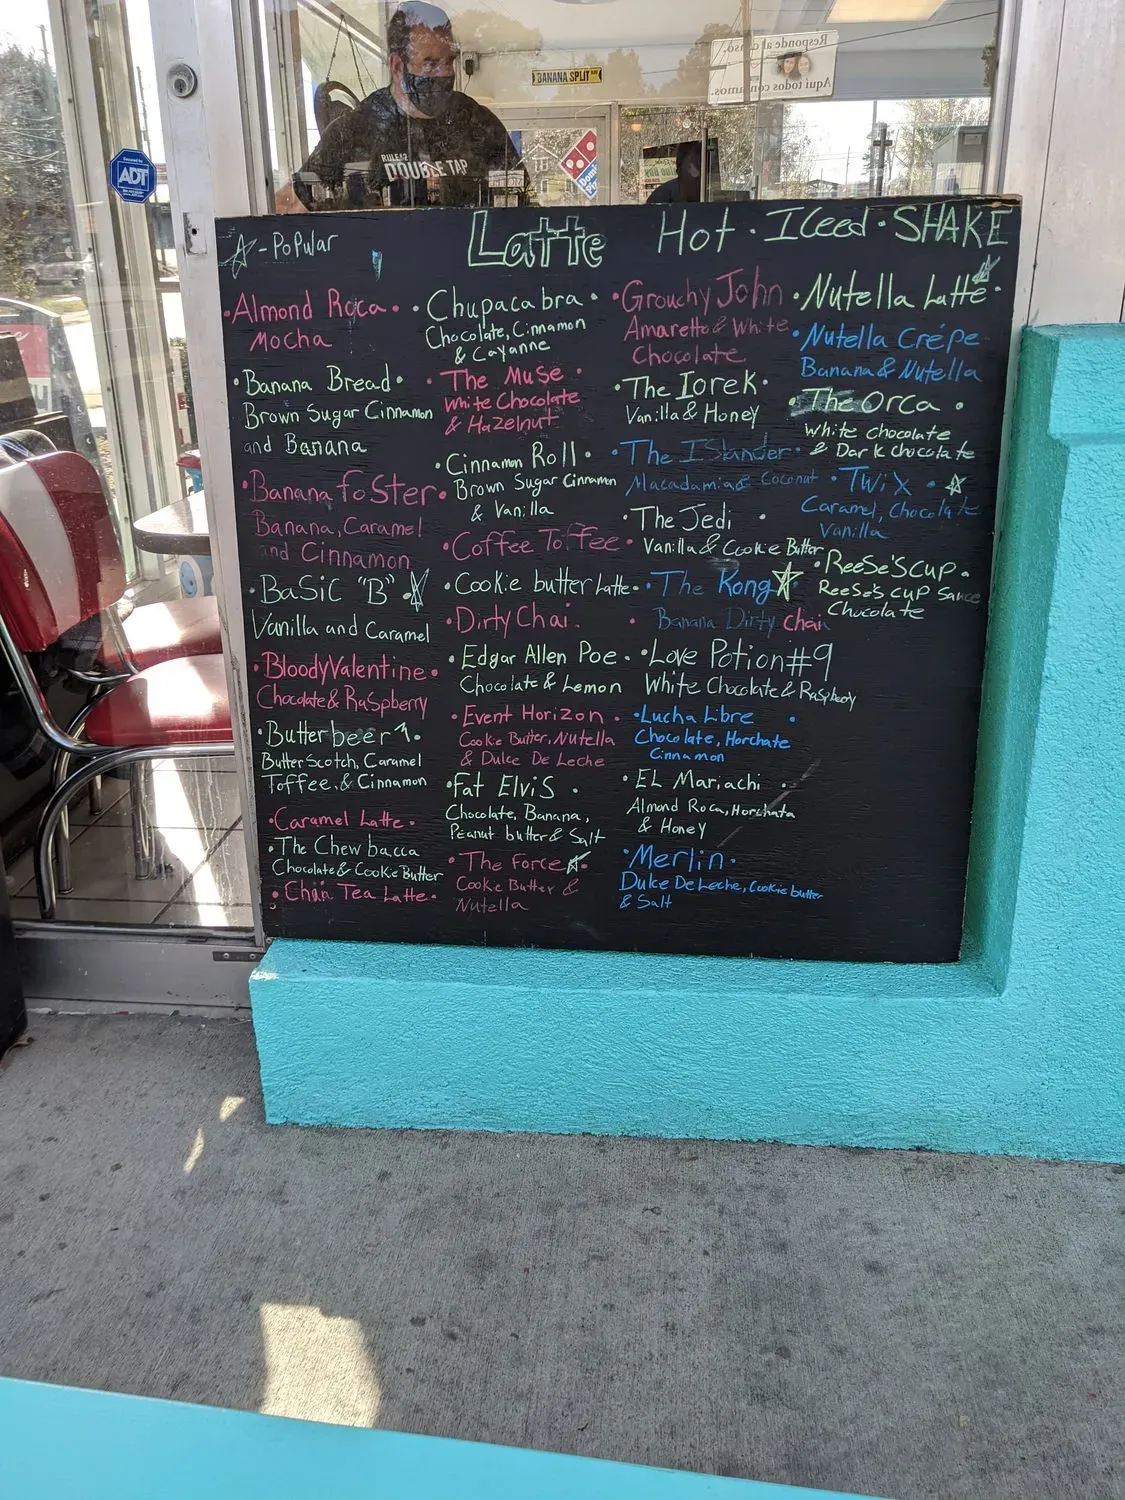 Responde al censo.
Aquí todos contamos.
BANANA SPLIT
ADT
RULE #2
DOUBLE TAP
Domino's
☆ - Popular
Latte Hot · Iceed · SHAKE
· Almond Roca ·
Mocha
· Banana Bread ·
Brown Sugar Cinnamon
and Banana
· Banana foster ·
Banana, Caramel
and Cinnamon
· BaSic "B" · ☆
Vanilla and Caramel
· Bloody Valentine ·
Chocolate & Raspberry
· Butterbeer ·
ButterScotch, Caramel
Toffee, & Cinnamon
· Caramel Latte ·
· The Chewbacca
Chocolate & Cookie Butter
· Chai Tea Latte ·
· Chupacabra ·
Chocolate, Cinnamon
& Cayanne
· The Muse ·
White Chocolate
& Hazelnut
· Cinnamon Roll ·
Brown Sugar Cinnamon
& Vanilla
· Coffee Toffee ·
· Cookie butter Latte ·
· Dirty Chai ·
· Edgar Allen Poe ·
Chocolate & Lemon
· Event Horizon ·
Cookie Butter, Nutella
& Dulce De Leche
· Fat Elvis ·
Chocolate, Banana,
Peanut butter & Salt
· The force ☆ ·
Cookie Butter &
Nutella
· Grouchy John
Amaretto & White
Chocolate
· The Iorek ·
Vanilla & Honey
· The ISlander ·
Macadamia & Coconut
· The Jedi ·
Vanilla & Cookie Butter
· The Kong ☆
Banana Dirty chai
· Love Potion #9
White Chocolate & Raspberry
· Lucha Libre ·
Chocolate, Horchate
Cinnamon
· EL Mariachi ·
Almond Roca, Horchata
& Honey
· Merlin ·
Dulce De Leche, Cookie butter
& Salt
· Nutella Latte · ☆
· Nutella Crépe
Banana & Nutella
· The Orca ·
White chocolate
& Dark chocolate
· Twix · ☆
Caramel, Chocolate
Vanilla
· ReeSe'S CuP ·
ReeSe's cup Sauce
Chocolate